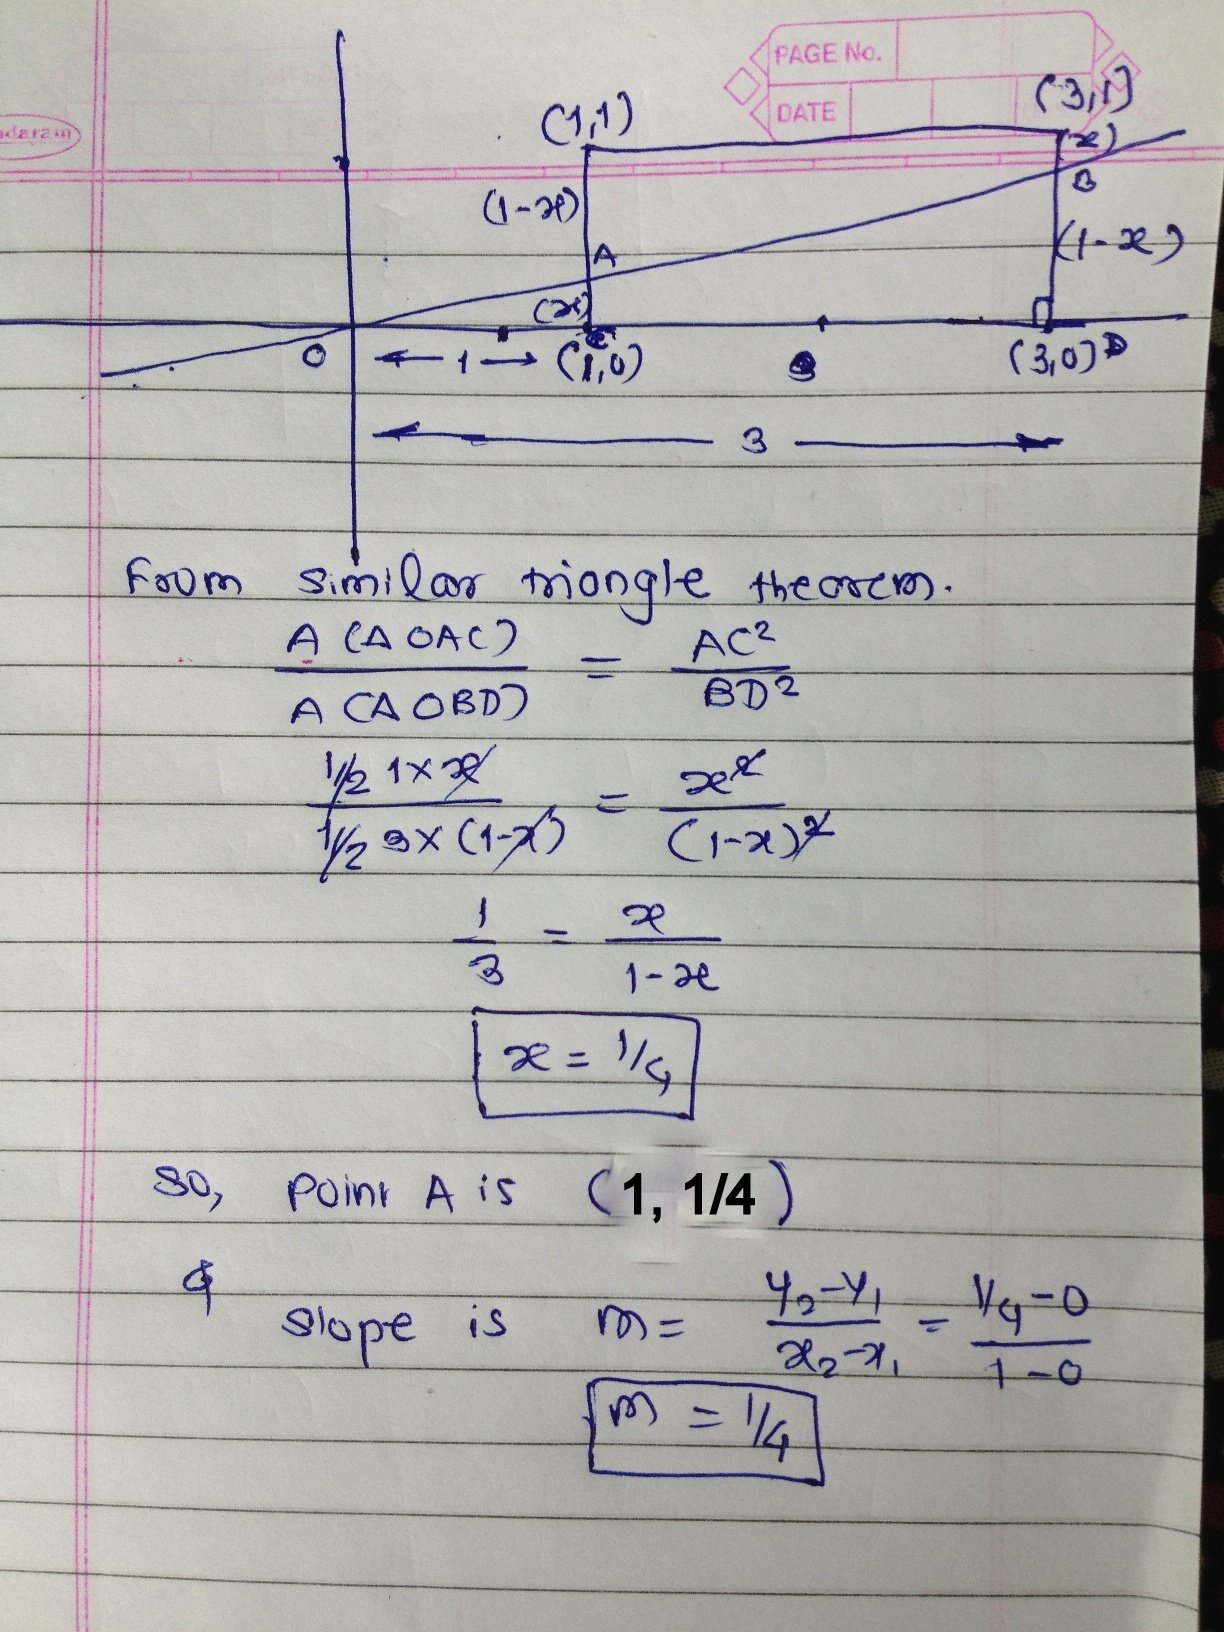 PAGE No.
DATE
(1,1)
(3,1)
(x)
B
(1-x)
A
(1-x)
(x)
C
O
1
(1,0)
3
(3,0) D
3
From similar triangle theorem.
A (Δ OAC) / A (Δ OBD) = AC² / BD²
1/2 1 × x / 1/2 3 × (1-x) = x² / (1-x)²
1/3 = x / 1-x
x = 1/4
So, Point A is (1, 1/4)
&
slope is m = y₂-y₁ / x₂-x₁ = 1/4-0 / 1-0
m = 1/4